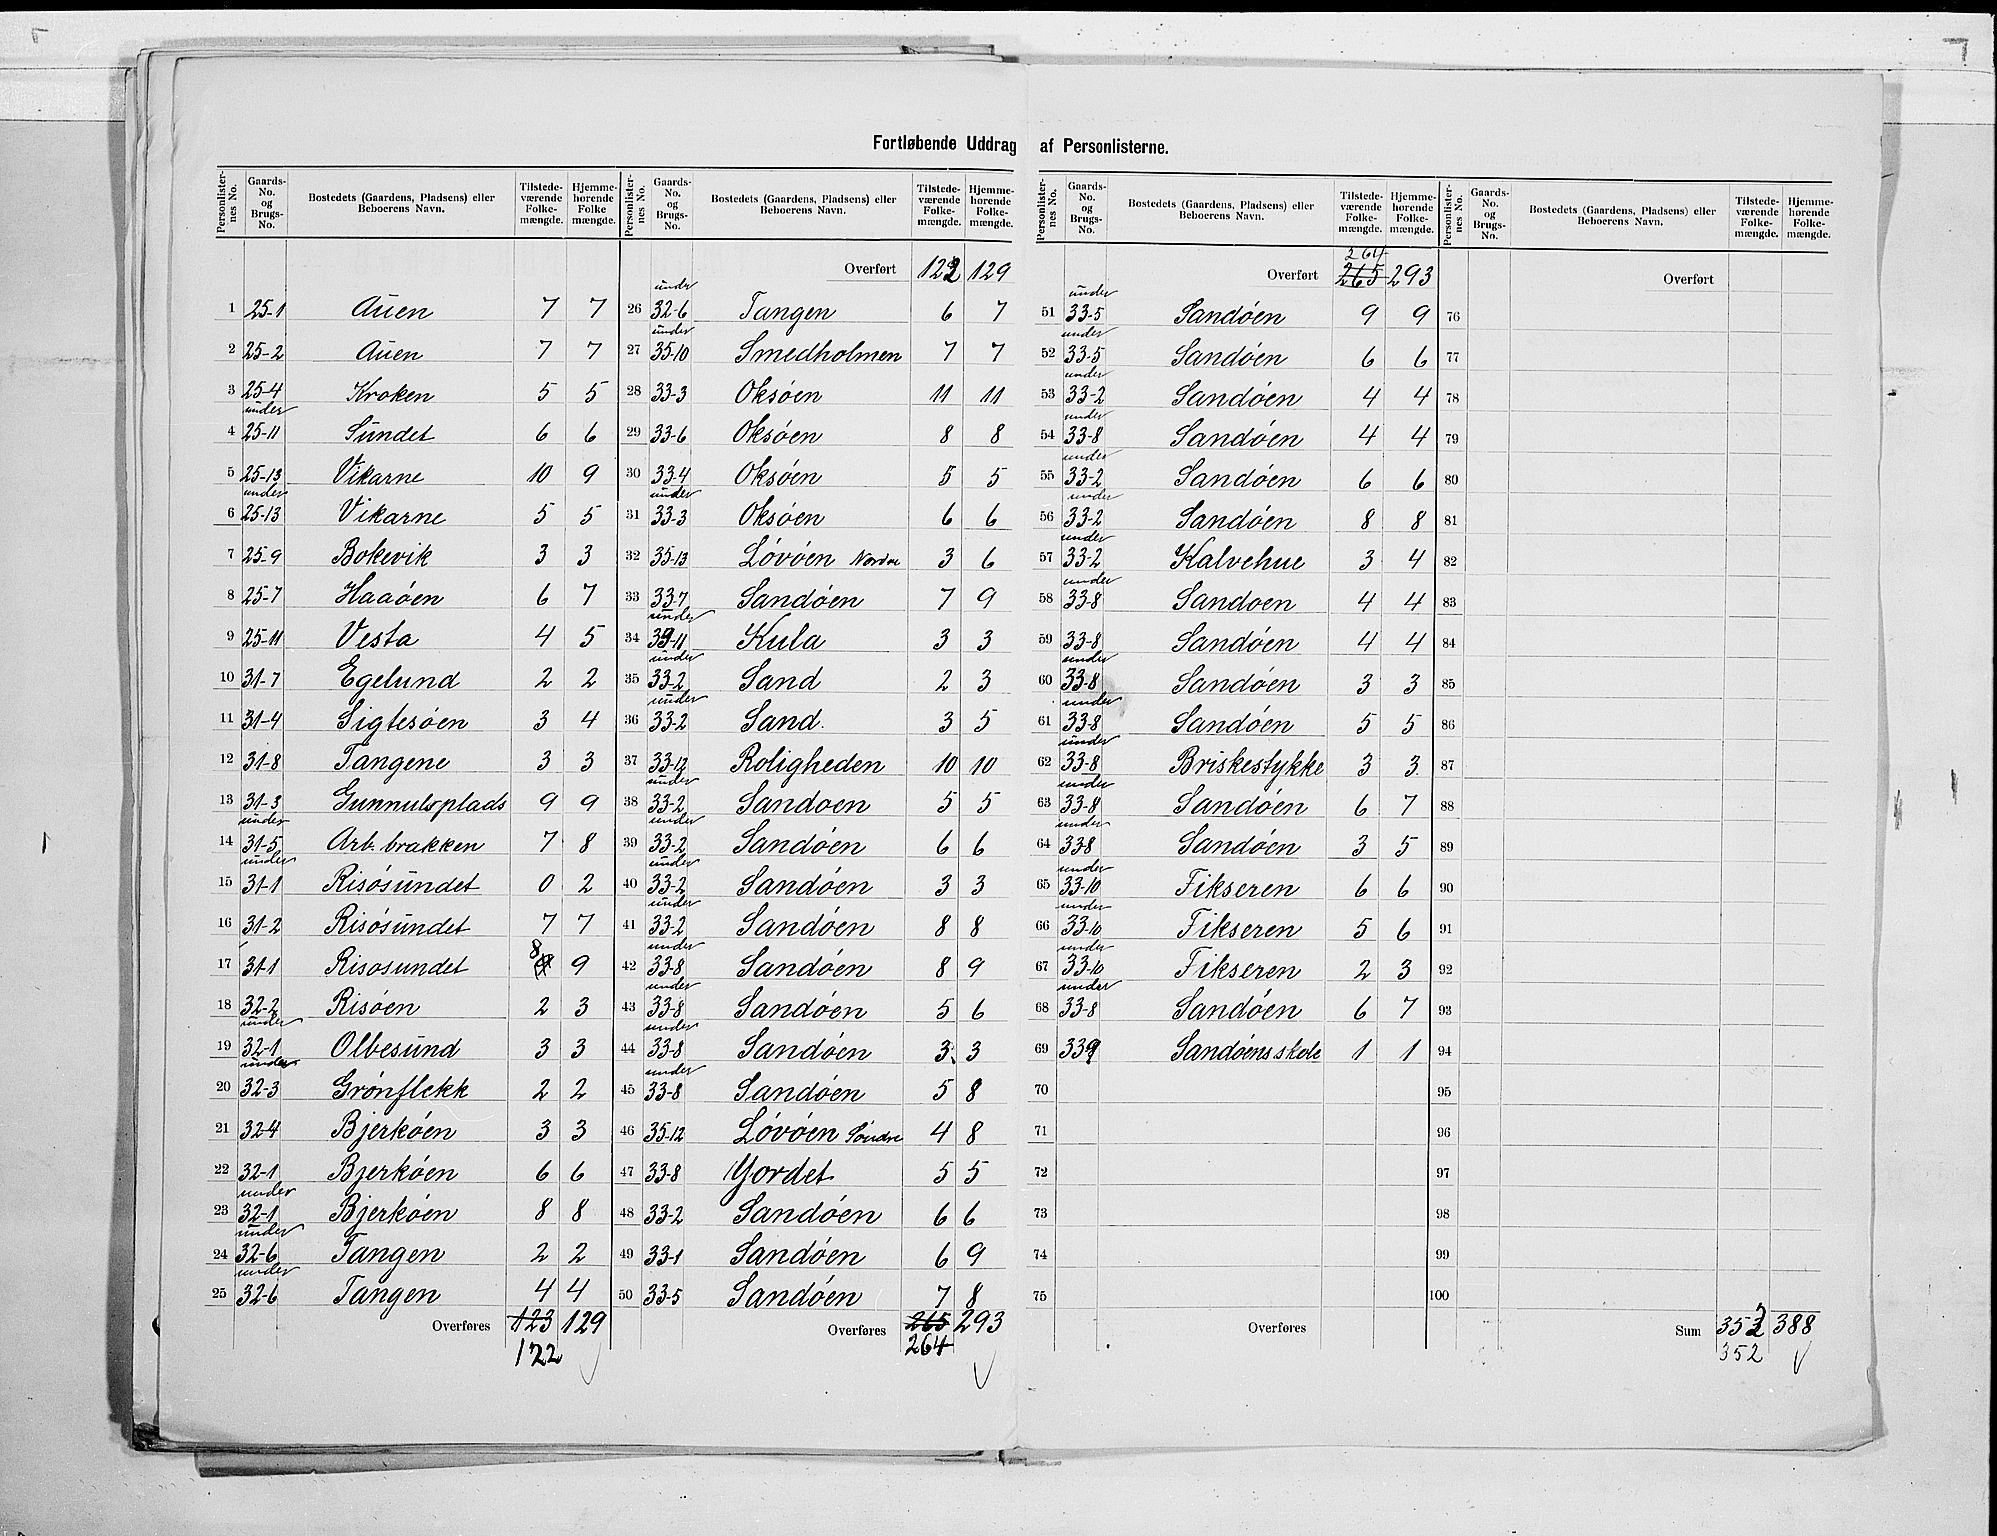 Fortløbende Uddrag af Personlisterne.
Personlisternes No. Gaards-No. og Brugs-No. Bostedets (Gaardens, Pladsens) eller Beboerens Navn. Tilstedeværende Folkemængde. Hjemmehørende Folkemængde.
1 25-1 Auen 7 7
2 25-2 Auen 7 7
3 25-4 Kroken 5 5
4 under 25-11 Sundet 6 6
5 25-13 Vikarne 10 9
6 under 25-13 Vikarne 5 5
7 25-9 Bokevik 3 3
8 25-7 Haaöen 6 7
9 25-11 Vesta 4 5
10 31-7 Egelund 2 2
11 31-4 Sigtesöen 3 4
12 31-8 Tangene 3 3
13 31-3 Gunnulsplads 9 9
14 under 31-5 Arb. brakken 7 8
15 under 31-1 Risösundet 0 2
16 31-2 Risösundet 7 7
17 31-1 Risosundet 8 9
18 32-2 Risöen 2 3
19 under 32-1 Olbesund 3 3
20 under 32-3 Grönflekk 2 2
21 32-4 Bjerköen 3 3
22 32-1 Bjerköen 6 6
23 under 32-1 Bjerköen 8 8
24 under 32-6 Tangen 2 2
25 under 32-6 Tangen 4 4
Overføres 123 129
122
Personlisternes No. Gaards-No. og Brugs-No. Bostedets (Gaardens, Pladsens) eller Beboerens Navn. Tilstedeværende Folkemængde. Hjemmehørende Folkemængde.
Overført 122 129
26 under 32-6 Tangen 6 7
27 under 35-10 Smedholmen 7 7
28 33-3 Oksöen 11 11
29 33-6 Oksöen 8 8
30 33-4 Oksöen 5 5
31 under 33-3 Oksöen 6 6
32 35-13 Lövöen Nordre 3 6
33 33-7 Sandöen 7 9
34 under 33-11 Kula 3 3
35 under 33-2 Sand 2 3
36 under 33-2 Sand. 3 5
37 33-12 Roligheden 10 10
38 under 33-2 Sandoen 5 5
39 under 33-2 Sandöen 6 6
40 under 33-2 Sandöen 3 3
41 under 33-2 Sandöen 8 8
42 under 33-8 Sandöen 8 9
43 under 33-8 Sandöen 5 6
44 under 33-8 Sandöen 3 3
45 under 33-8 Sandöen 5 8
46 35-12 Lövöen Söndre 4 8
47 33-8 Yordet 5 5
48 33-2 Sandöen 6 6
49 33-1 Sandöen 6 9
50 33-5 Sandöen 7 8
Overføres 265 293
264
Personlisternes No. Gaards-No. og Brugs-No. Bostedets (Gaardens, Pladsens) eller Beboerens Navn. Tilstedeværende Folkemængde. Hjemmehørende Folkemængde.
264
Overført 265 293
51 under 33-5 Sandöen 9 9
52 under 33-5 Sandöen 6 6
53 under 33-2 Sandöen 4 4
54 under 33-8 Sandöen 4 4
55 under 33-2 Sandöen 6 6
56 under 33-2 Sandöen 8 8
57 under 33-2 Kalvehue 3 4
58 under 33-8 Sandoen 4 4
59 33-8 Sandöen 4 4
60 under 33-8 Sandöen 3 3
61 under 33-8 Sandöen 5 5
62 under 33-8 Briskestykke 3 3
63 under 33-8 Sandöen 6 7
64 under 33-8 Sandöen 3 5
65 under 33-10 Fikseren 6 6
66 under 33-10 Fikseren 5 6
67 under 33-10 Fikseren 2 3
68 under 33-8 Sandöen 6 7
69 33-9 Sandöens skole 1 1
70
71
72
73
74
75
Overføres
Personlisternes No. Gaards-No. og Brugs-No. Bostedets (Gaardens, Pladsens) eller Beboerens Navn. Tilstedeværende Folkemængde. Hjemmehørende Folkemængde.
Overført
76
77
78
79
80
81
82
83
84
85
86
87
88
89
90
91
92
93
94
95
96
97
98
99
100
Sum 352 388
352